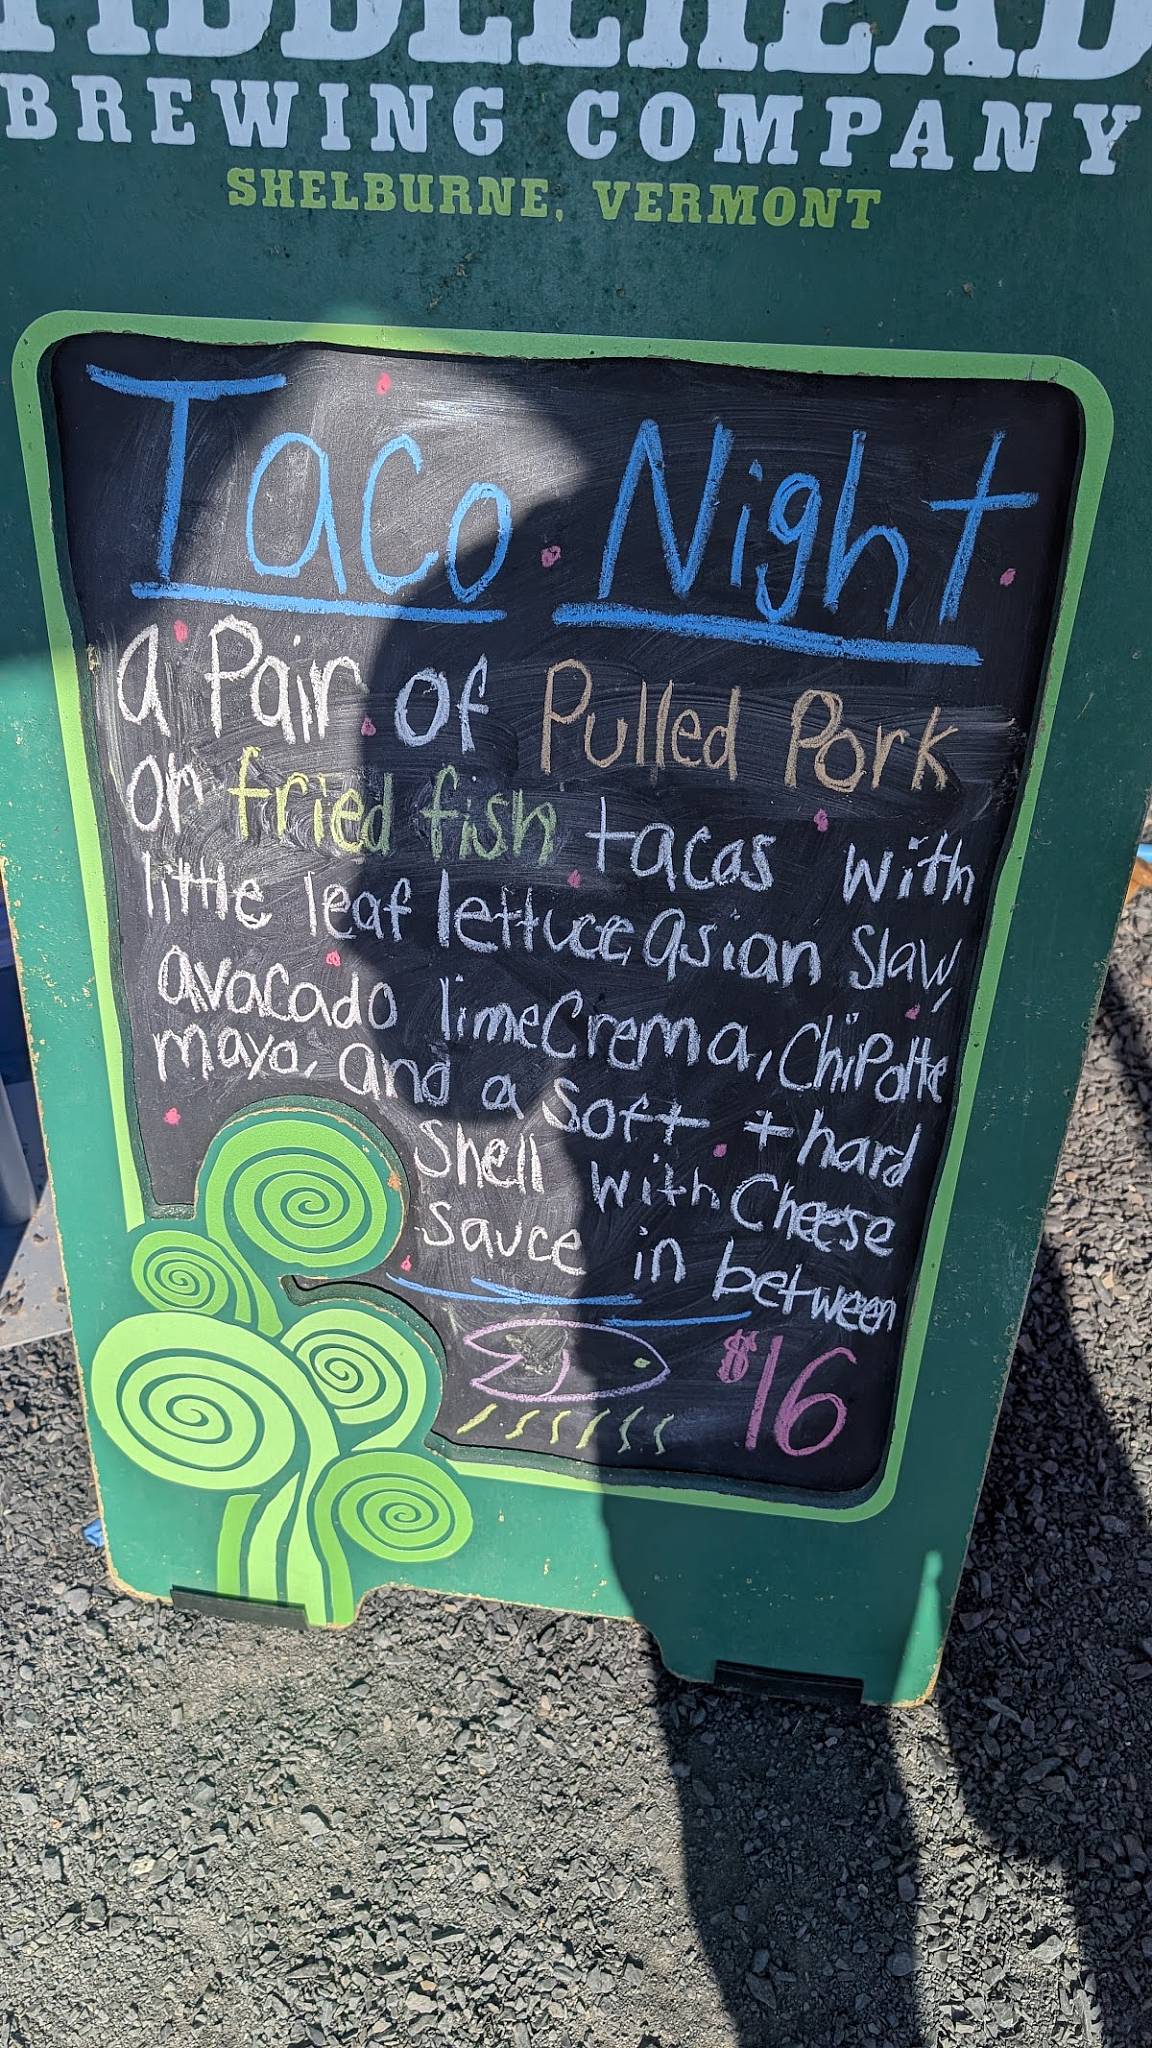 FIDDLEHEAD
BREWING COMPANY
SHELBURNE, VERMONT
Taco Night
a Pair of Pulled Pork
or fried fish tacos with
little leaf lettuce, asian slaw,
avacado lime Crema, ChiPolte
mayo, and a soft + hard
Shell with Cheese
sauce in between
$16